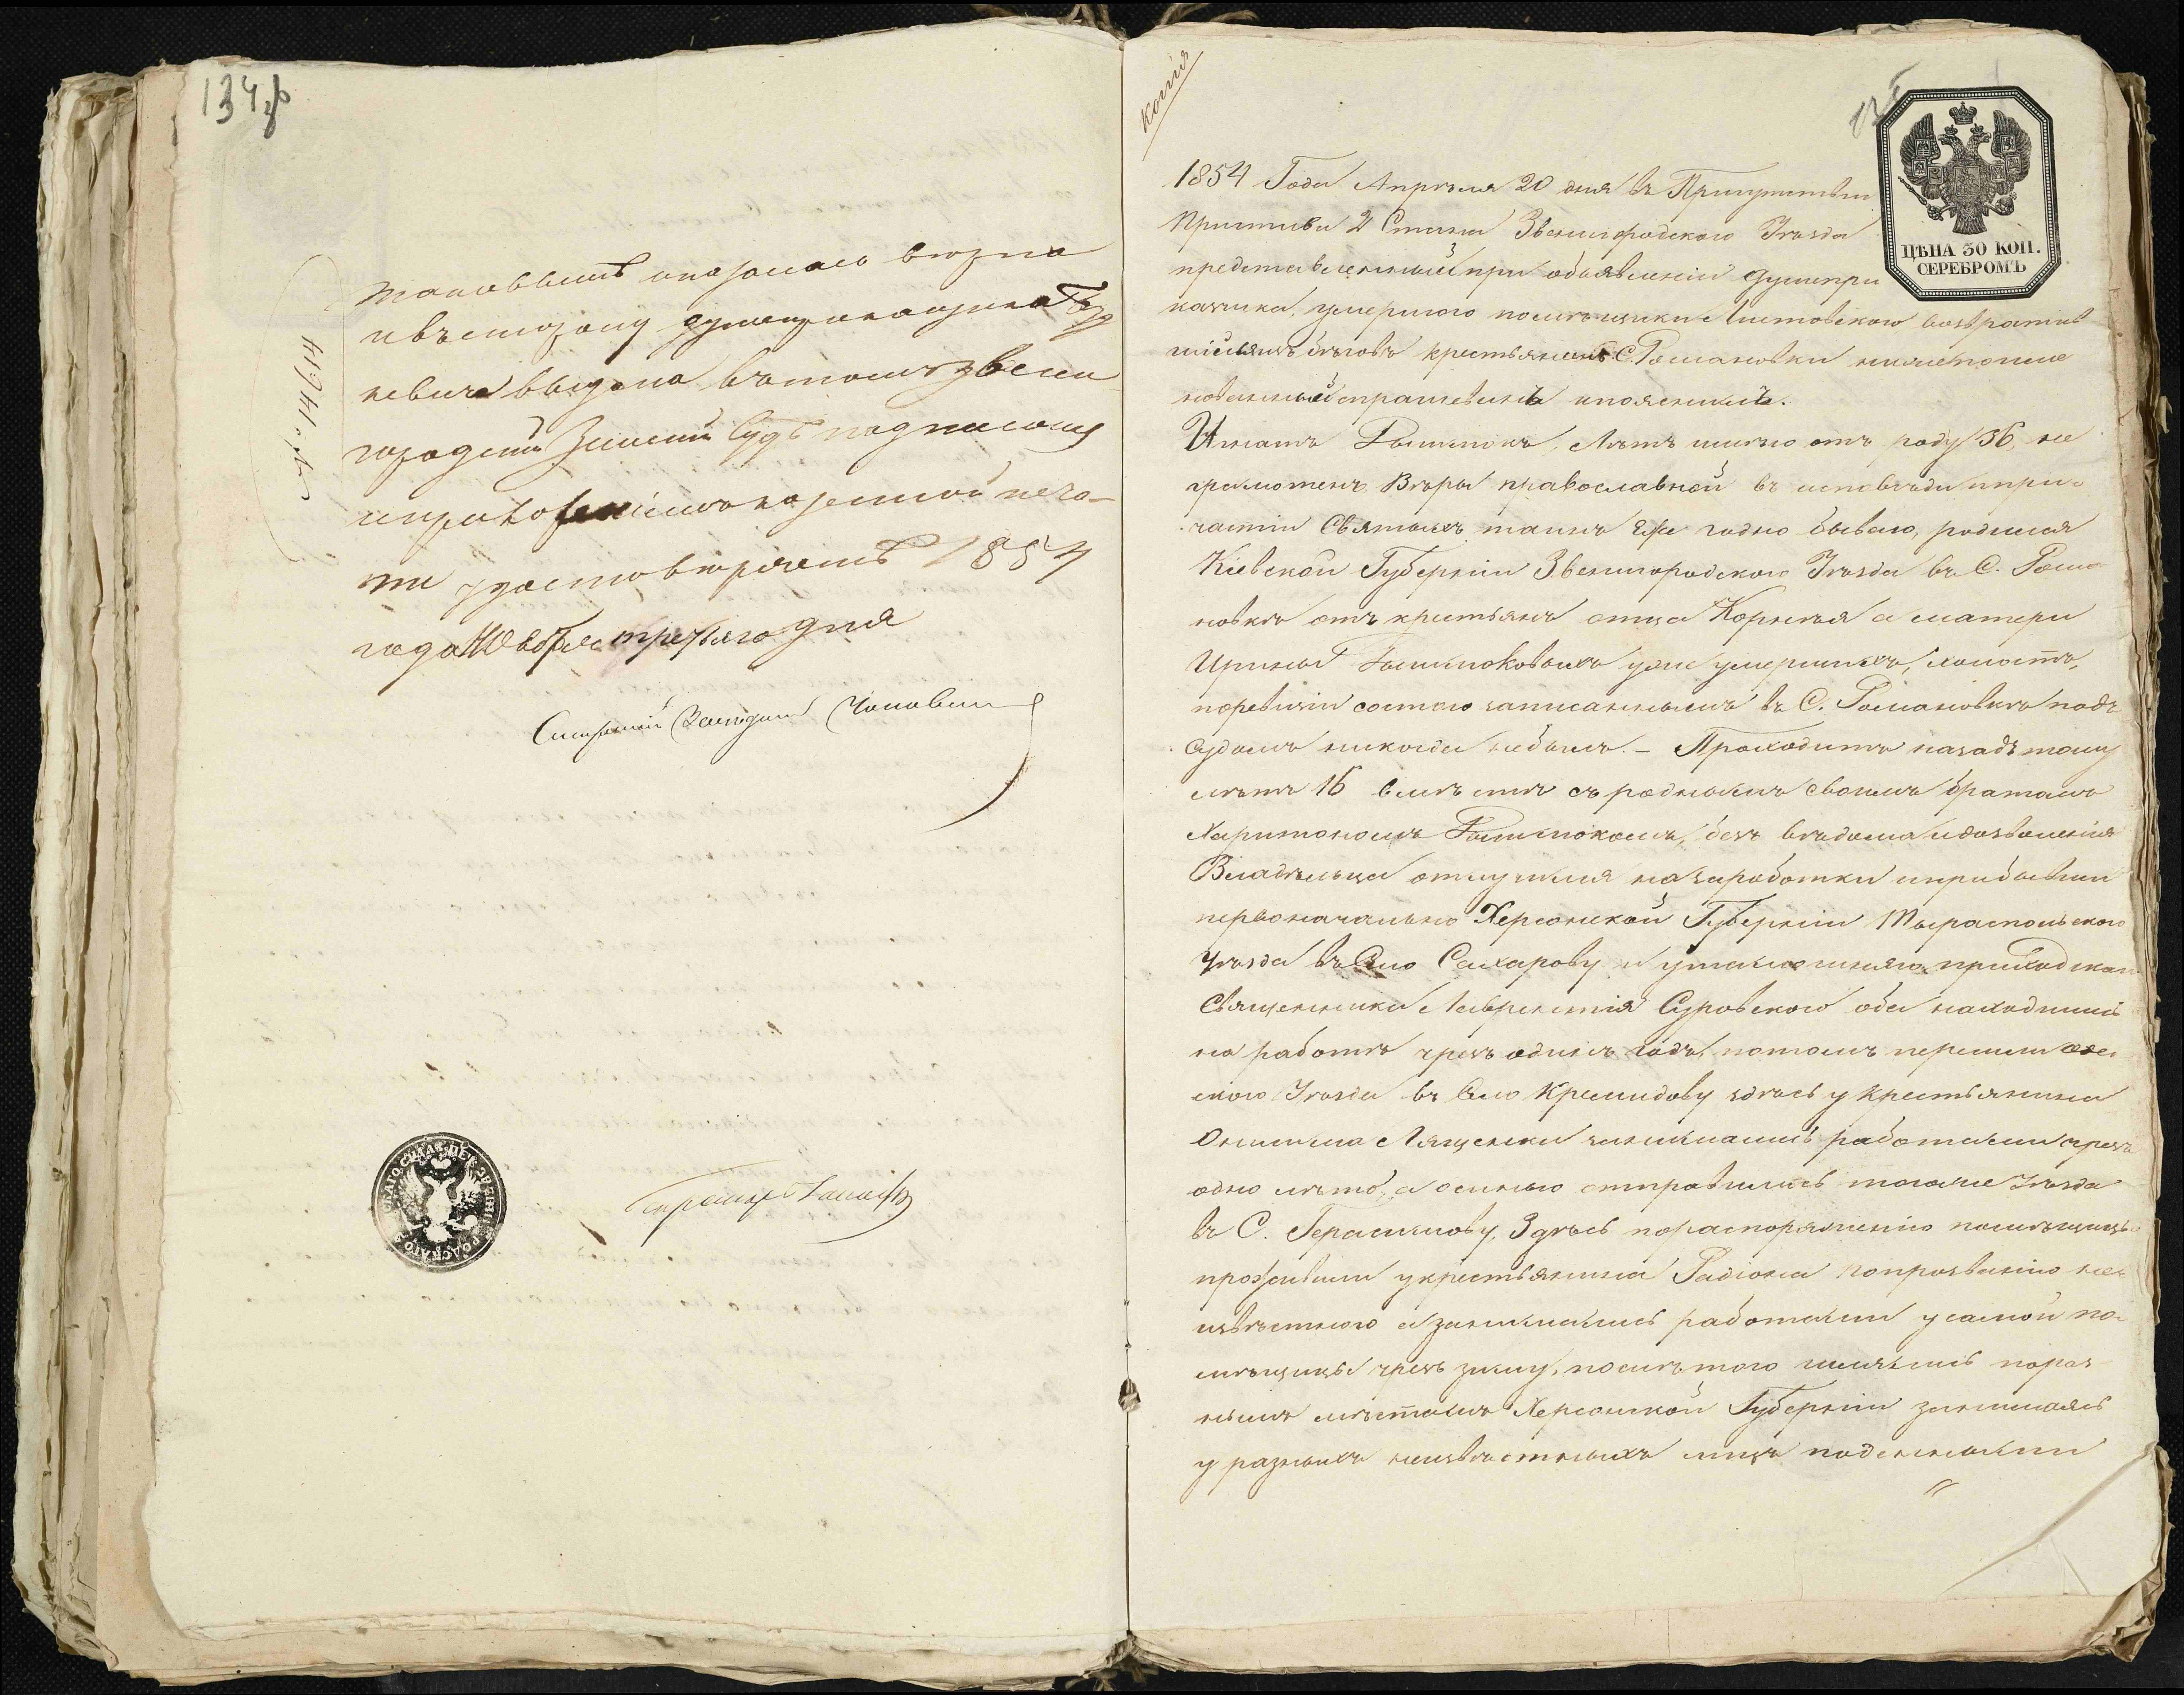 134 об
№ 14614
таковымъ оказалась верна
и въ сторону душеприкащика
кевича выдана въ томъ Звени
городскій Земскій Судъ подписомъ
и приложеніемъ казенной печа-
ти удостоверяетъ 1854
года Ноября третьяго дня
копія
ЦѢНА 30 КОП.
СЕРЕБРОМЪ
1854 Года Апрѣля 20 дня въ Присутствіи
Пристава 2 Стана Звенигородского Уѣзда
представленный при объявленіи душепри
кащика, умершаго помѣщика Листовского возврати
шійся изъ бѣговъ крестьянинъ С. Романовки нижепоиме
нованный спрашеванъ и пояснилъ.
Игнатъ, Лѣтъ имѣю отъ роду 36, не
грамотенъ Вѣры православной въ исповѣди и при-
частіи Святыхъ таинъ Еже годно бываю, родился
Кіевской Губерніи Звенигородского Уѣзда въ С. Рома
новкѣ отъ крестьянъ отца Корнѣя а матери
Ирины уже умершихъ, холостъ,
по ревизіи состою записаннымъ въ С. Романовкѣ подъ
судомъ никогда небылъ. – Проходитъ назадъ тому
лѣтъ 16 вмѣстѣ съ роднымъ своимъ братомъ
Харитономъ, безъ вѣдома и дозволенія
Владѣльца отлучился на заработки и прибывши
первоначально Херсонской Губерніи Тыраспольского
Уѣзда въ Село Сахарову и у тамошняго приходскаго
Священника Лаврентія Суровского оба находились
на работѣ чрезъ одинъ годъ, потомъ перешли Одес
ского Уѣзда въ Село Кремидову здѣсь у крестьянина
Онисима Лященка занимались работами чрезъ
одно лѣто, а осенью отправились того же Уѣзда
въ С. Герасимову, Здѣсь по распоряженію помѣщицы
проживали у крестьянина Радіона по прозванію не-
извѣстного а занимались работами у самой по-
мѣщицы чрезъ зиму, послѣ того шлялись по раз
нымъ мѣстамъ Херсонской Губерніи занимаясь
у разныхъ неизвѣстныхъ лицъ поденными